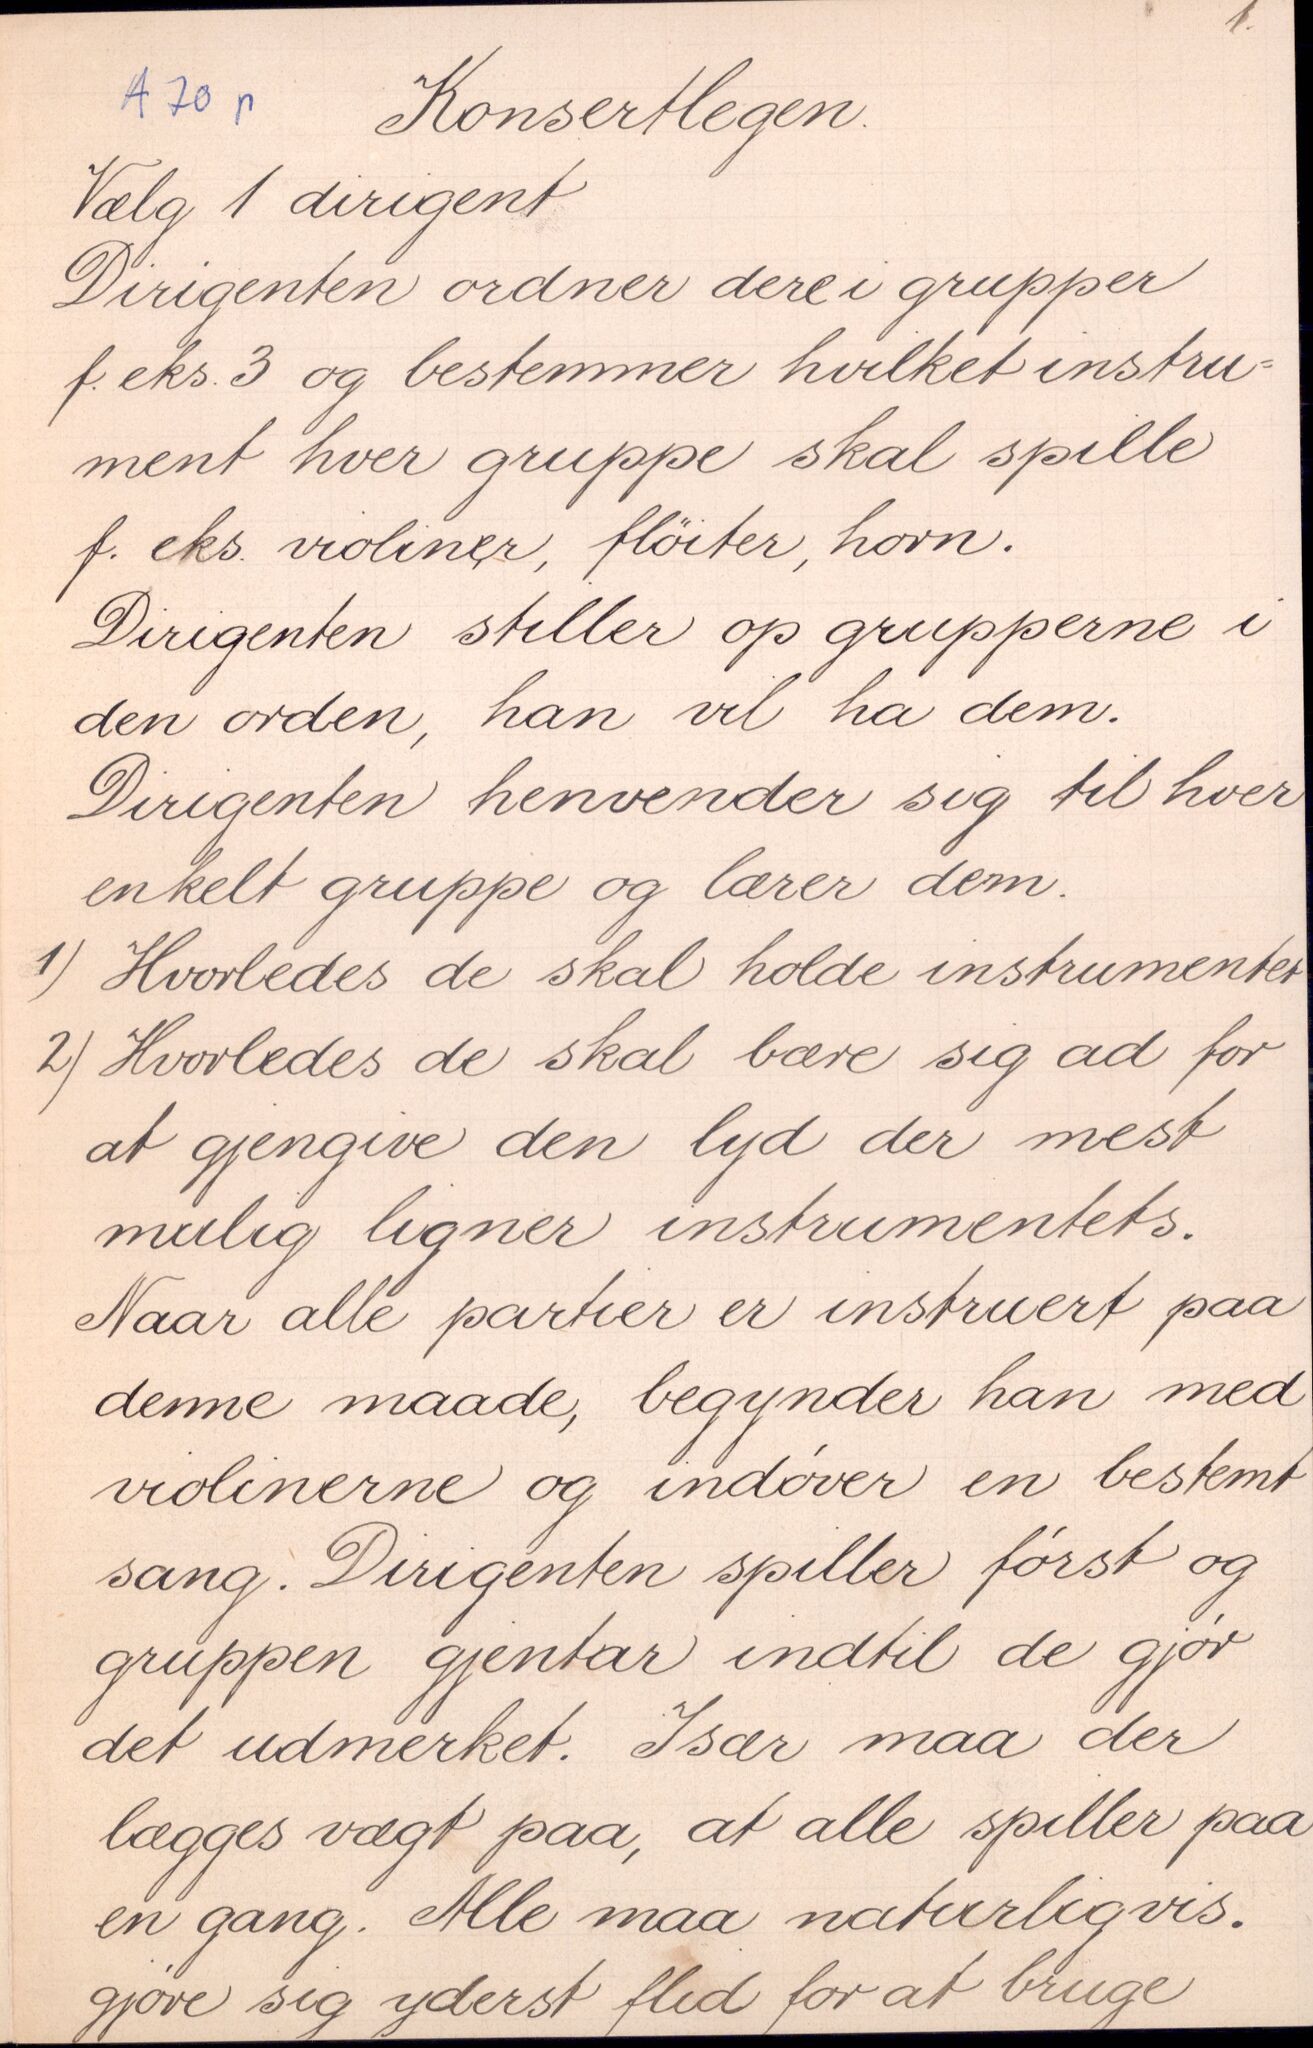 1.
A 70 p
Konsertlegen.
Vælg 1 dirigent
Dirigenten ordner dere i grupper
f. eks. 3 og bestemmer hvilket instru=
ment hver gruppe skal spille
f. eks. violiner, flöiter, horn.
Dirigenten stiller op grupperne i
den orden, han vil ha dem.
Dirigenten henvender sig til hver
enkelt gruppe og lærer dem.
1) Hvorledes de skal holde instrumentet
2) Hvorledes de skal bære sig ad for
at gjengive den lyd der mest
mulig ligner instrumentets.
Naar alle partier er instruert paa
denne maade, begynder han med
violinerne og indóver en bestemt
sang. Dirigenten spiller fórst og
gruppen gjentar indtil de gjór
det udmerket. Især maa der
lægges vægt paa, at alle spiller paa
en gang. Alle maa naturligvis.
gjóre sig yderst flid for at bruge